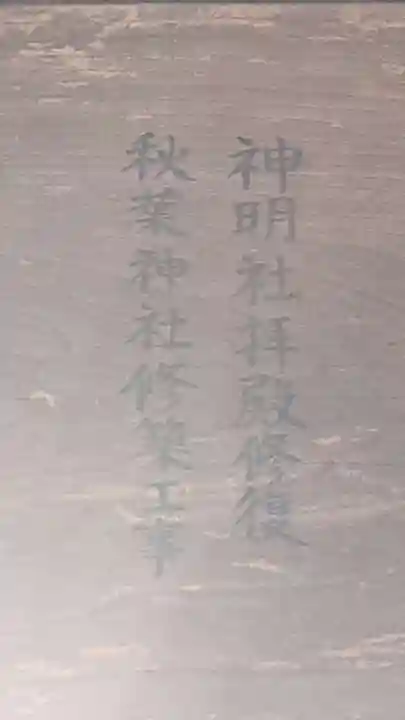 神明社拝殿修復
秋葉神社修築工事